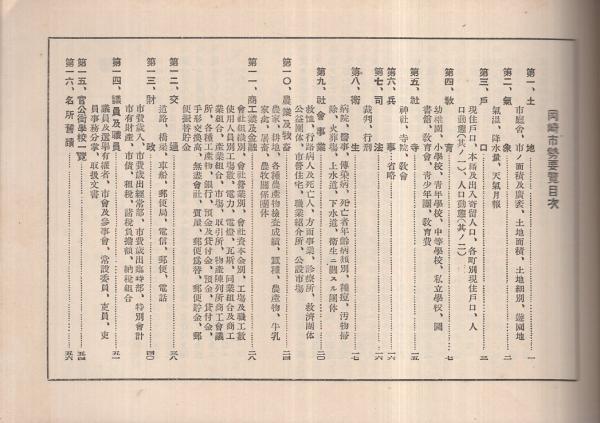 岡崎市勢要覧目次
第一、土地……一
市廳舍、市ノ面積及廣袤、土地面積、土地細別、遊園地
第二、氣象……二
氣溫、降水量、天氣日報
第三、戶口……二
現住戶口、本籍及出入寄留人口、各町別現住戶口、人
口動態(其ノ一)、人口動態(其ノ二)
第四、敎育……七
幼稚園、小學校、靑年學校、中等學校、私立學校、圖
書館、敎育會、靑少年團、敎育費
第五、社寺……一五
神社、寺院、敎會
第六、兵事…省略……一六
第七、司法……一六
裁判、行刑
第八、衞生……一七
病院、醫事、傳染病、死亡者年齡病類別、種痘、汚物掃
除、火葬場、上水道、下水道、衞生ニ關スル團體
第九、社會事業……二〇
救護、行路病人及死亡人、方面事業、診療所、救濟團體
公益團體、市營住宅、職業紹介所、公設市場
第一〇、農業及牧畜……二四
農家、耕地、各種農產物檢査成績、蠶種、農產物、牛乳
家禽、屠畜、農牧關係團體
第一一、商工業及金融……二八
會社組織別、會社營業別、會社資本金別、工場及職工數
使用人員別工場數、電力、電燈、瓦斯、同業組合及商工
業組合、產業組合、市場、取引所、物產陳列所商工會議
所、各種工產物、銀行、預金及貸付金、預金、貸付金、
手形交換高、無盡會社、質屋、郵便爲替、郵便貯金、郵
便振替貯金
第一二、交通……三八
道路、橋梁、車船、郵便局、電信、郵便、電話
第一三、財政……四〇
市費歲入、市費歲出經常部、市費歲出臨時部、特別會計
市有財產、市債、租稅、諸稅負擔額、納稅組合
第一四、議員及職員……五一
議員及選擧有權者、市會及參事會、常設委員、吏員、吏
員事務分掌、取扱文書
第一五、官公衙學校一覽……五四
第一六、名所舊蹟……五六